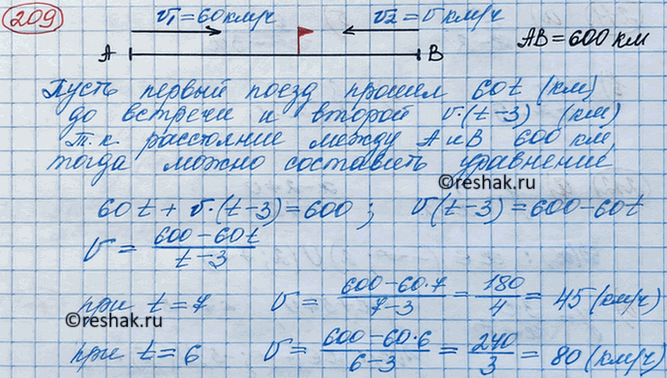 209
v₁=60 км/ч
v₂=v км/ч
A
B
AB=600 км
Пусть первый поезд прошел 60t (км)
до встречи и второй v·(t-3) (км)
Т.к. расстояние между A и B 600 км,
тогда можно составить уравнение
©reshak.ru
60t+v·(t-3)=600; v(t-3)=600-60t
v = (600-60t)/(t-3)
при t=7 v = (600-60·7)/(7-3) = 180/4 = 45 (км/ч)
©reshak.ru
при t=6 v = (600-60·6)/(6-3) = 240/3 = 80 (км/ч)